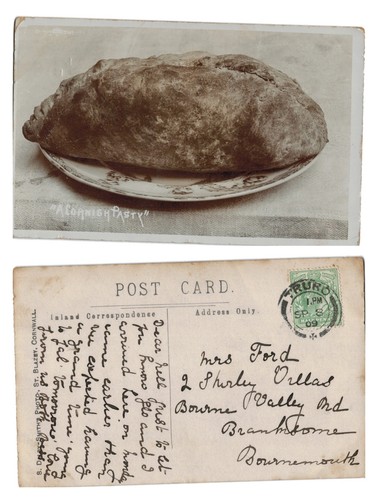 "A CORNISH PASTY"
POST CARD.
Inland Correspondence
Address Only.
TRURO
1.PM
SP 8
09
Dear Nell Just to let
you know Flo and I
arrived here on Monday
came earlier than
we expected having
a grand time going
to Fal. tomorrow. Love
from us both
ST. BLAZEY, CORNWALL.
Mrs Ford
2 Shirley Villas
Bourne Valley Rd
Branksome
Bournemouth